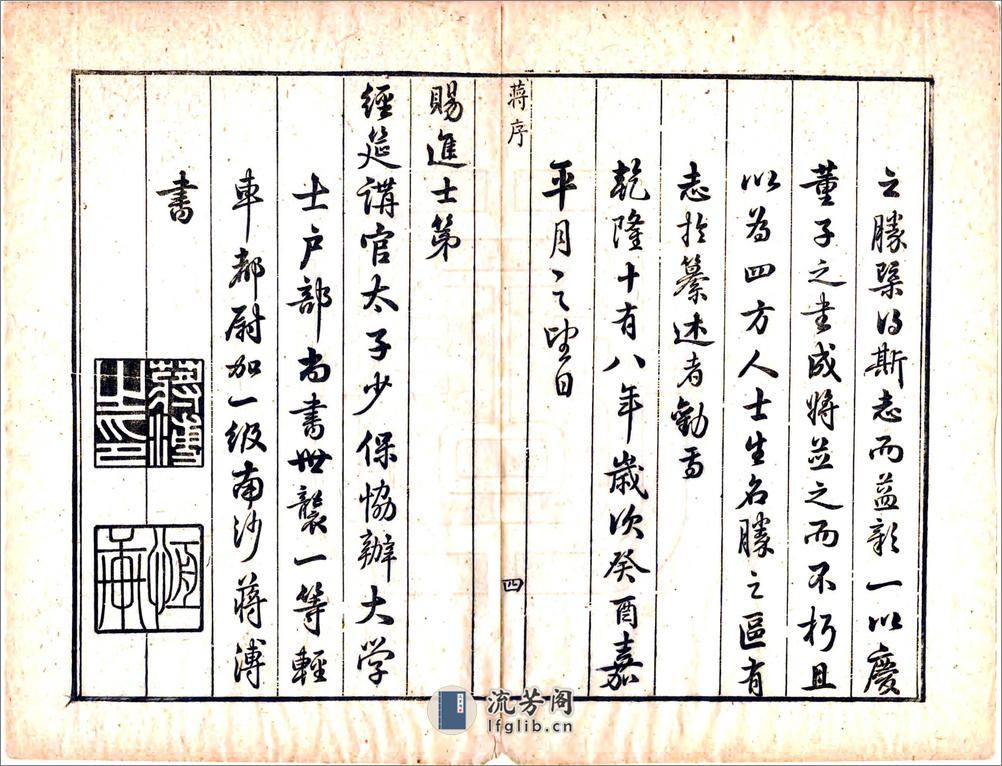 之勝槩得斯志而益彰一以慶
董子之書成將並之而不朽且
以為四方人士生名勝之區有
志於纂述者勸焉
乾隆十有八年歲次癸酉嘉
平月之望日
蔣序
四
賜進士第
經筵講官太子少保協辦大学
士户部尚書世襲一等輕
車都尉加一級南沙蔣溥
書
蔣溥之印
恒軒
流芳阁
lfglib.cn